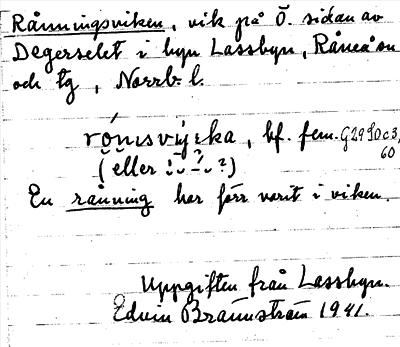 Rånningsviken, vik på Ö. sidan av
Degerselet i byn Lassbyn, Råneå sn
och tg, Norrb. l.
rónısvyı̣ka, bf. fem. G29 S0c3,
60
(eller ?)
En rånning har förr varit i viken.
Uppgiften från Lassbyn.
Edvin Brännström 1941.